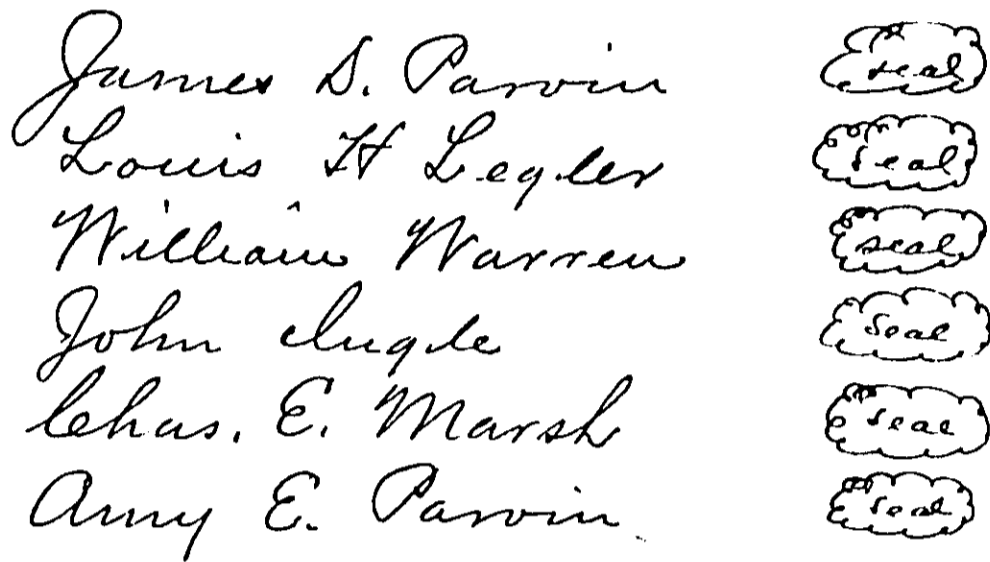 James D. Parvin seal
Louis H Legler seal
William Warren seal
John Ingle seal
Chas. E. Marsh seal
Amy E. Parvin seal